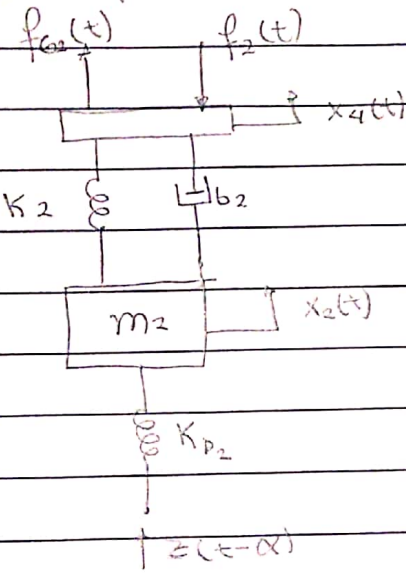 f_{G2}(t) f_2(t)
x_4(t)
K2 b_2
m_2 x_2(t)
K_{p_2}
z(t-α)